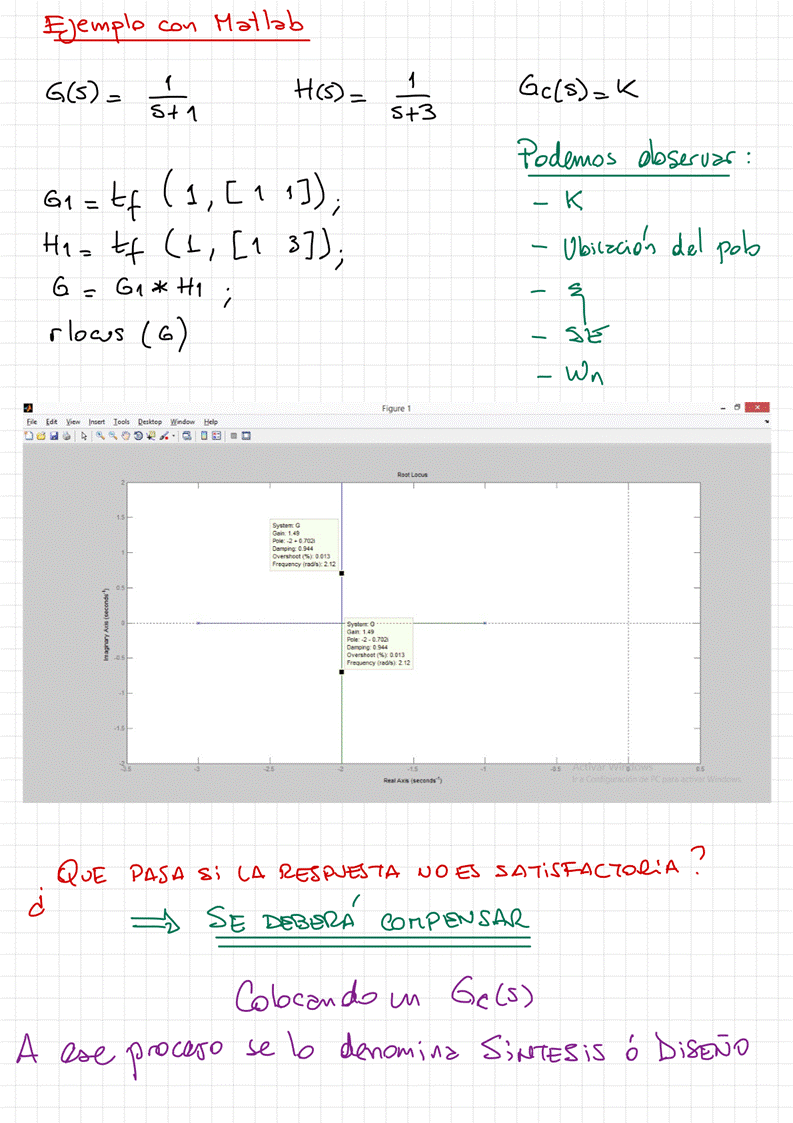 Ejemplo con Matlab
G(s) = 1/(s+1) H(s) = 1/(s+3) Gc(s) = K
Podemos observar :
- K
- Ubicación del polo
- ξ
- SE
- Wn
G1 = tf (1, [1 1]);
H1 = tf (1, [1 3]);
G = G1 * H1 ;
rlocus (G)
Figure 1
File Edit View Insert Tools Desktop Window Help
Root Locus
System: G
Gain: 1.49
Pole: -2 + 0.702i
Damping: 0.944
Overshoot (%): 0.013
Frequency (rad/s): 2.12
System: G
Gain: 1.49
Pole: -2 - 0.702i
Damping: 0.944
Overshoot (%): 0.013
Frequency (rad/s): 2.12
Imaginary Axis (seconds⁻¹)
2
1.5
1
0.5
0
-0.5
-1
-1.5
-2
-3.5 -3 -2.5 -2 -1.5 -1 -0.5 0 0.5
Real Axis (seconds⁻¹)
Activar Windows
Ir a Configuración de PC para activar Windows.
¿QUE PASA Si LA RESPUESTA NO ES SATISFACTORIA?
⇒ SE DEBERÁ COMPENSAR
Colocando un Gc(s)
A ese proceso se lo denomina SINTESIS ó DISEÑO